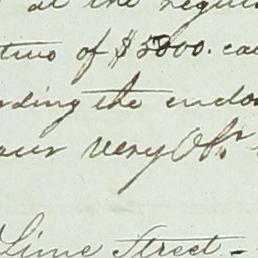 at the regul
two of $5000. ca
rding the endo
our very Obt.
Lime Street -